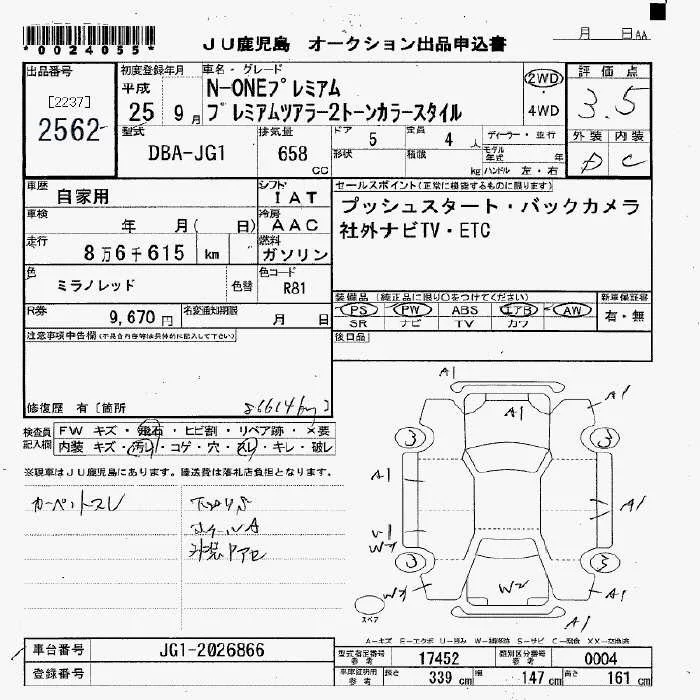 *0024055*
JU鹿児島 オークション出品申込書
月 日AA
出品番号
[2237]
2562
初度登録年月
平成
25 9月
車名・グレード
N-ONEプレミアム
プレミアムツアラー2トーンカラースタイル
2WD
・
4WD
評価点
3.5
外装 内装
D C
型式
DBA-JG1
排気量
658
CC
ドア 5
定員 4 人
形状
積載 kg
ディーラー・並行
モデル年式 年
ハンドル 左・右
車歴
自家用
シフト
IAT
車検
年 月( 日)
冷房
AAC
走行
8万6千615 km
燃料
ガソリン
色
ミラノレッド
色替
色コード
R81
R券
9,670円
名変通知期限
月 日
セールスポイント(正常に機能するものに限ります)
プッシュスタート・バックカメラ
社外ナビTV・ETC
装備品 (純正品に限り〇をつけてください)
PS PW ABS エアB AW
SR ナビ TV カワ
新車保証書
有・無
後日品
注意事項申告欄(不具合内容等は具体的に記入して下さい)
修復歴 有 〔箇所
86614km
検査員
記入欄
FW キズ・飛石・ヒビ割・リペア跡・×要
内装 キズ・汚レ・コゲ・穴・スレ・キレ・破レ
※現車はJU鹿児島にあります。陸送費は落札店負担となります。
カーペットスレ
A1
A1
A1
3
3
A1
A1
W2
3
3
W2
A1
A1
スペア
A-キズ E-エクボ U-凹み W-補修跡 S-サビ C-腐食 XX-交換済
車台番号
JG1-2026866
登録番号
型式指定番号
参考
17452
類別区分番号
参考
0004
車庫証明用
参考
長さ 339 cm
幅 147 cm
高さ 161 cm